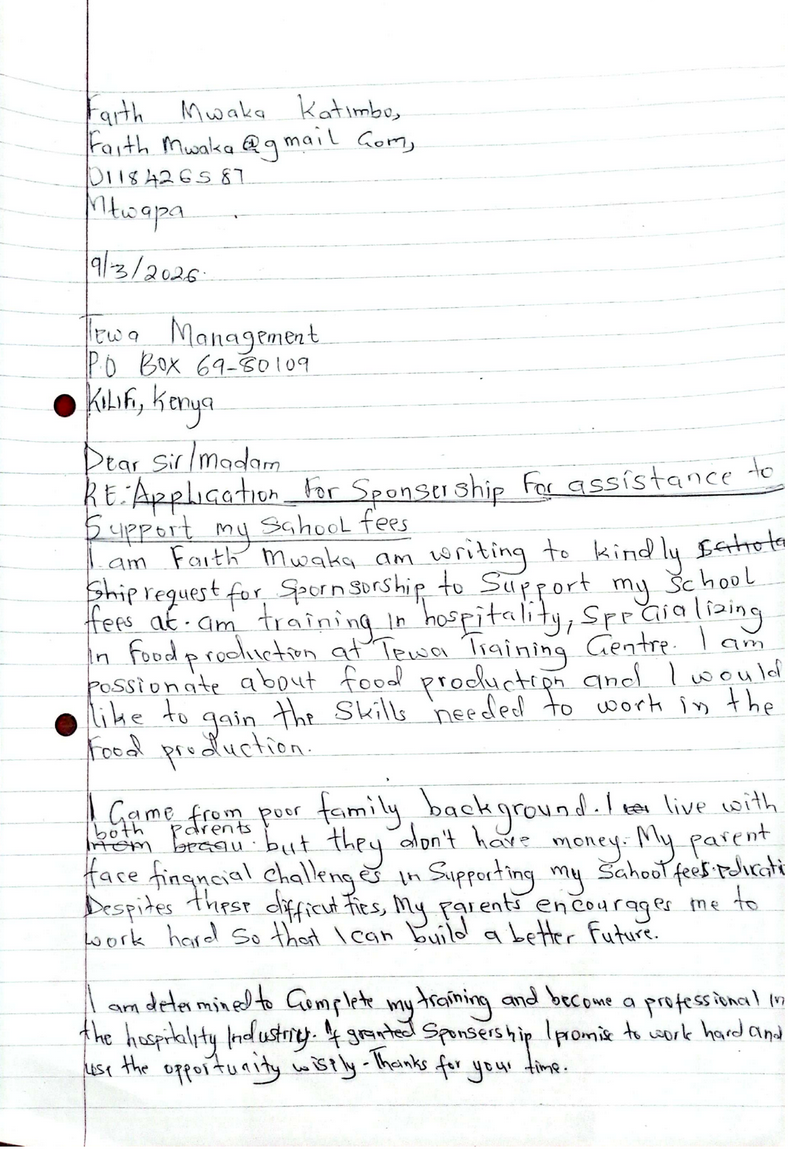 Faith Mwaka Katimbo,
Faith Mwaka@gmail Com,
0118426587
Mtwapa
9/3/2026.
Tewa Management
P.O BOX 69-80109
KILIFI, Kenya
Dear Sir/madam
RE:Application For Sponsership For assistance to
Support my School fees
I am Faith Mwaka am writing to kindly
Ship request for Spornsorship to Support my School
fees at. am training in hospitality, Specializing
in food production at Tewa Training Centre. I am
passionate about food production and I would
like to gain the Skills needed to work in the
Food production.
I Came from poor family background. I live with
both parents
but they don't have money. My parent
face financial challenges in Supporting my School fees.
Despites these difficulties, My parents encourages me to
work hard So that I can build a better Future.
I am determined to Complete my training and become a professional in
the hospitality Industry. If granted Sponsership I promise to work hard and
use the opportunity wisely-Thanks for your time.